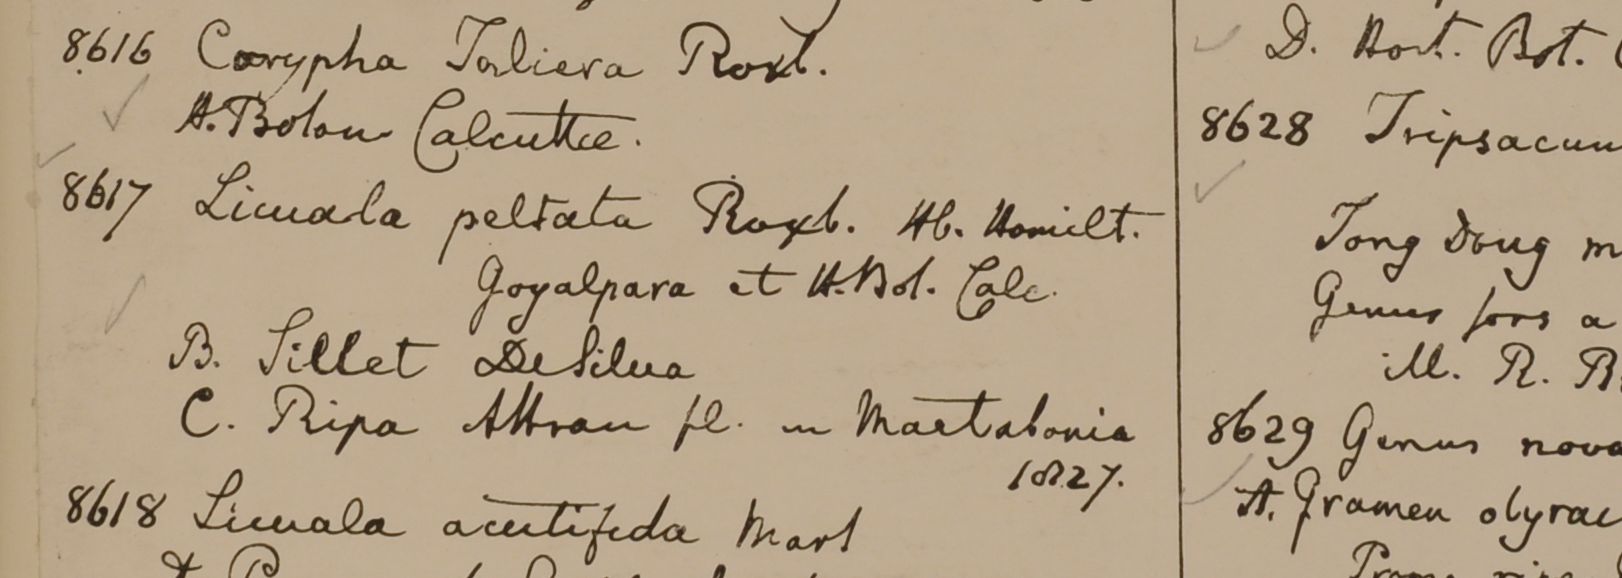 8616 Corypha Taliera Roxb.
H. Botan Calcuttae.
8617 Licuala peltata Roxb. Hb. Hamilt.
Goyalpara et H. Bot. Calc.
B. Sillet De Silva
C. Ripa Attran fl. in Martabania
1827.
8618 Licuala acutifida Mart
D. Hort. Bot. C
8628 Tripsacum
Tong Doug m
Genus fors a
M. R. B.
8629 Genus nova
A. Gramen olyrac